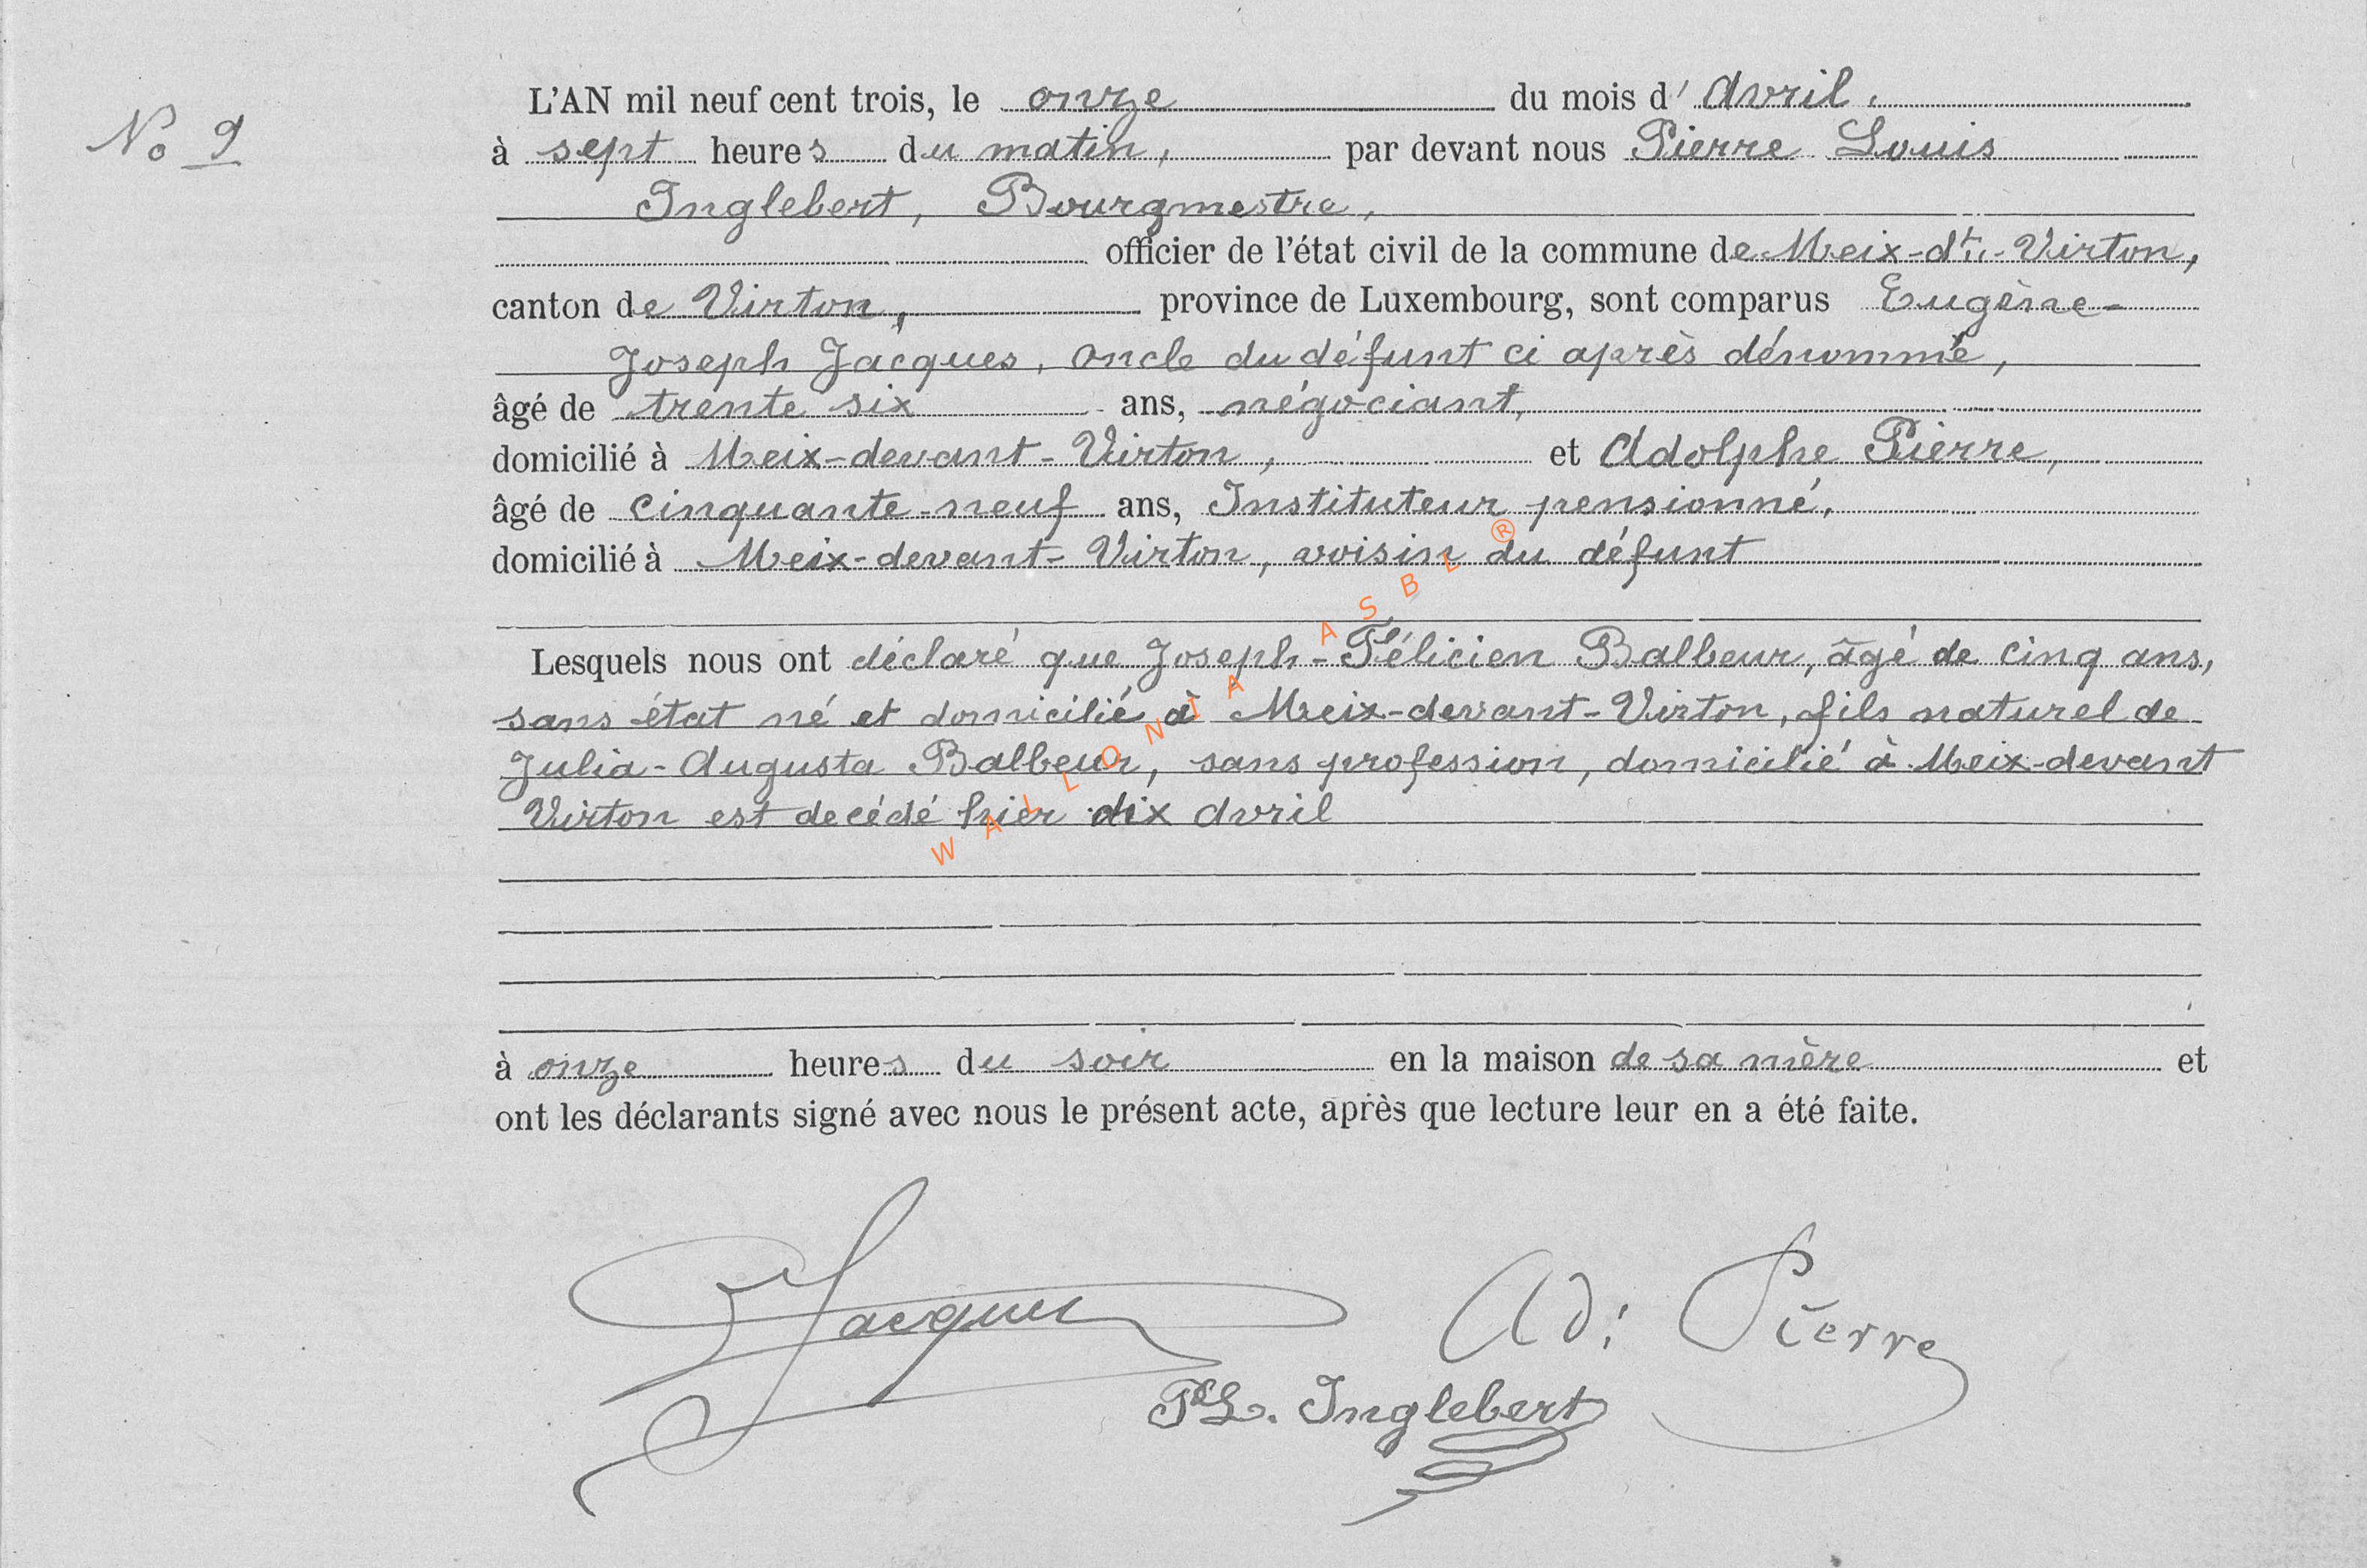 No 9
L'AN mil neuf cent trois, le onze du mois d' Avril.
à sept heures du matin, par devant nous Pierre Louis
Inglebert, Bourgmestre,
officier de l'état civil de la commune de Meix-dt.-Virton,
canton de Virton, province de Luxembourg, sont comparus Eugène-
Joseph Jacques, oncle du défunt ci après dénommé,
âgé de trente six ans, négociant,
domicilié à Meix-devant-Virton, et Adolphe Pierre,
âgé de cinquante-neuf ans, Instituteur pensionné,
domicilié à Meix-devant-Virton, voisin du défunt
Lesquels nous ont déclaré que Joseph-Félicien Balbeur, âgé de cinq ans,
sans état né et domicilié à Meix-devant-Virton, fils naturel de
Julia-Augusta Balbeur, sans profession, domicilié à Meix-devant
Virton est decédé hier dix Avril
à onze heures du soir en la maison de sa mère et
ont les déclarants signé avec nous le présent acte, après que lecture leur en a été faite.
Jacques
Ad: Pierre
PL. Inglebert
WALLONIA ASBL ®